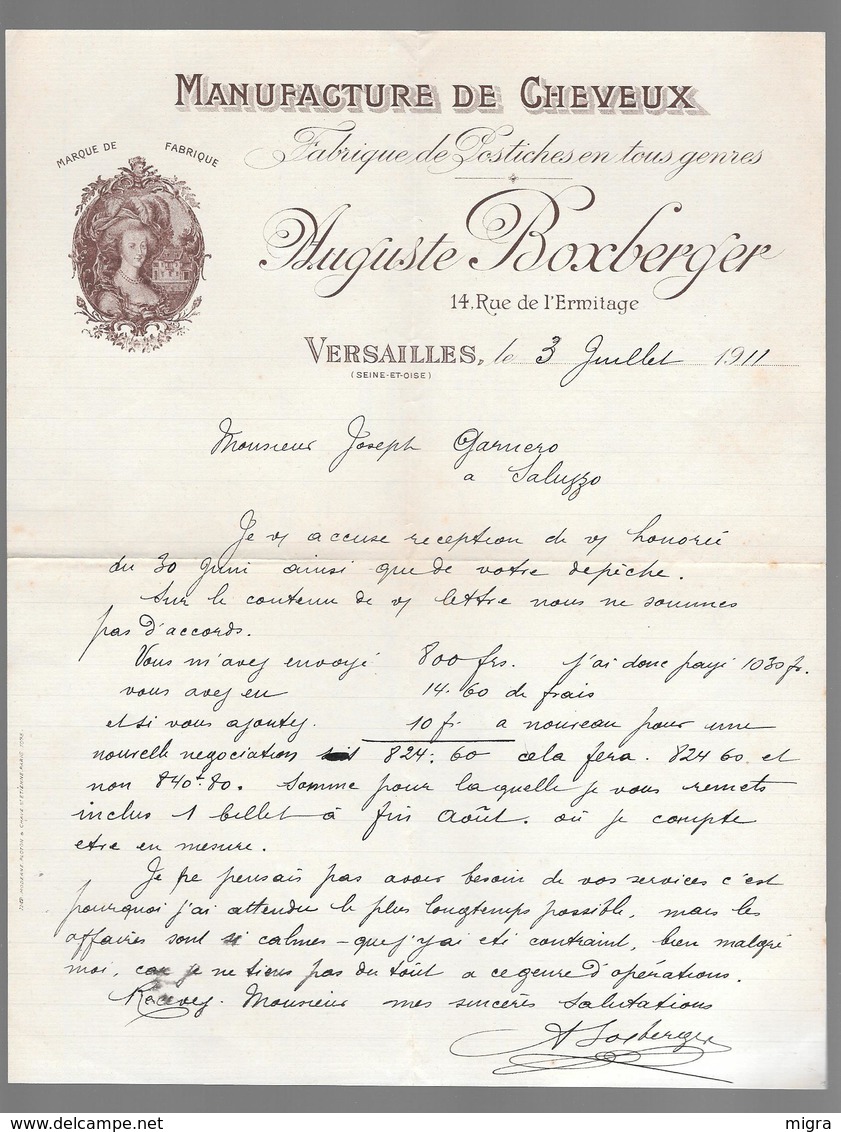 MANUFACTURE DE CHEVEUX
Fabrique de Postiches en tous genres
MARQUE DE FABRIQUE
Auguste Boxberger
14, Rue de l'Ermitage
VERSAILLES, le 3 Juillet 1911
(SEINE-ET-OISE)
Monsieur Joseph Garnero
a Saluzzo
Je v/ accuse reception de v/ honorée
du 30 Juni ainsi que de votre depèche.
Sur le contenu de v/ lettre nous ne sommes
pas d'accords.
Vous m'avez envoyé 800 frs. j'ai donc payé 1030 fr.
vous avez eu 14.60 de frais
et si vous ajoutez 10 fr a nouveau pour une
nouvelle negociation 824.60 cela fera. 824 60 et
non 840f.80. Somme pour laquelle je vous remets
inclus 1 billet à fin Août. où je compte
etre en mesure.
Je ne pensais pas avoir besoin de vos services c'est
pourquoi j'ai attendu le plus longtemps possible, mais les
affaires sont si calmes - que j'y ai eté contraint, bien malgré
moi, car je ne tiens pas du tout a ce genre d'opérations.
Recevez. Monsieur mes sincères salutations
A Boxberger
IMP. MODERNE, PLOTON & CHAVE ST ETIENNE-PARIS
delcampe.net
migra